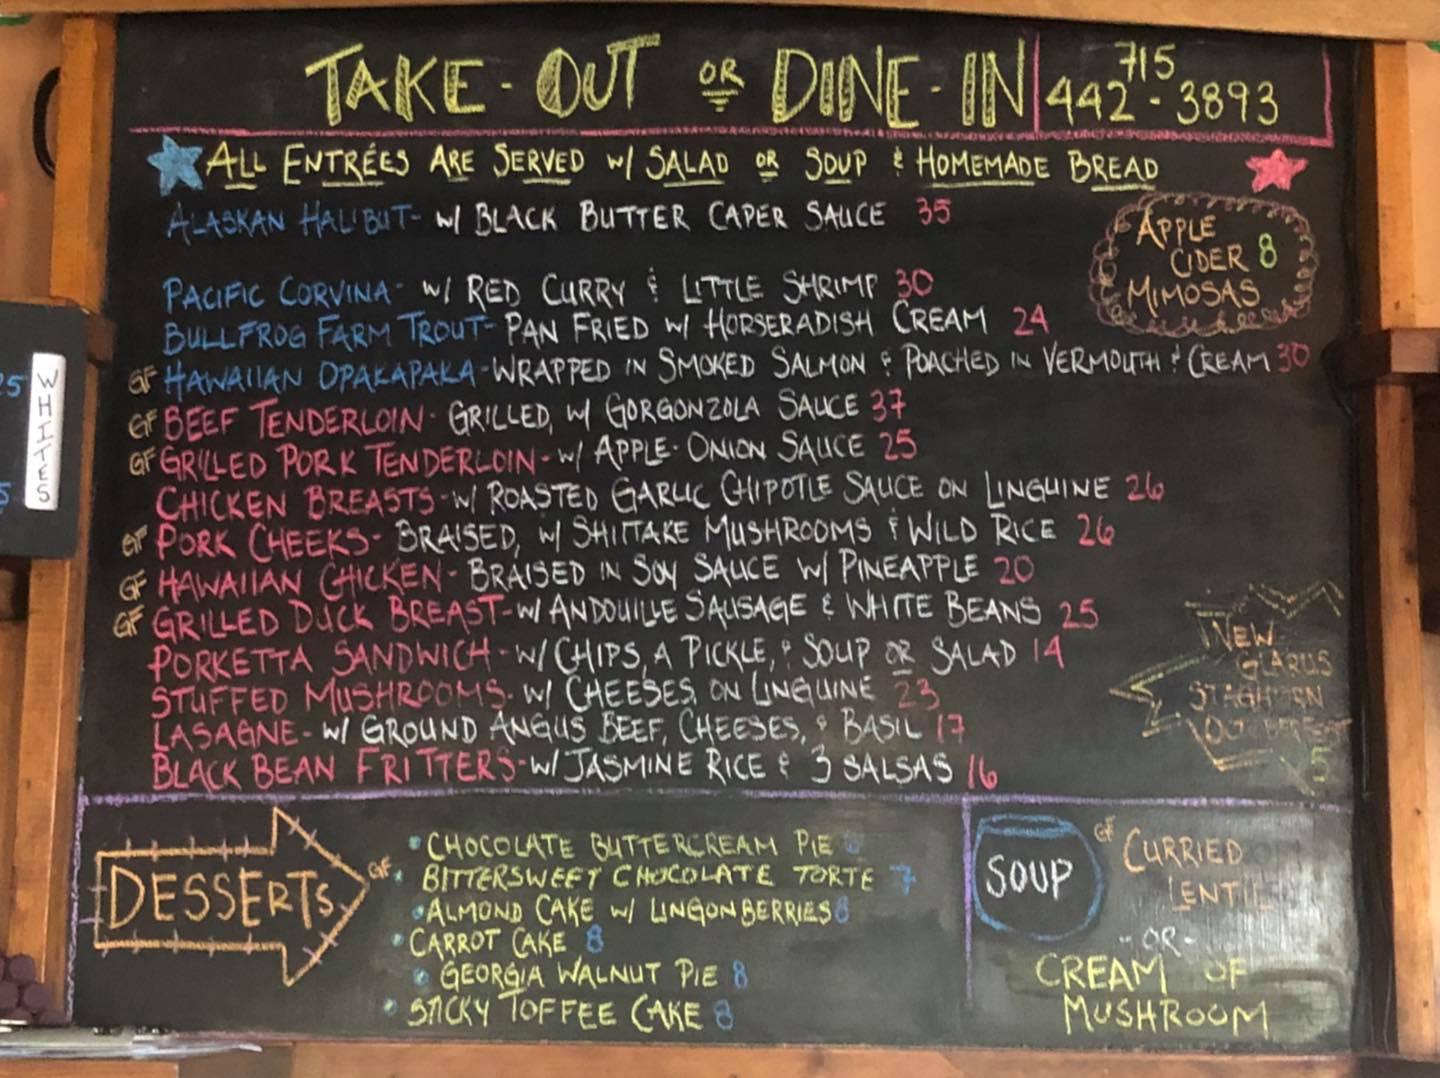 TAKE-OUT OR DINE-IN
715
442-3893
ALL ENTRÉES ARE SERVED W/ SALAD OR SOUP & HOMEMADE BREAD
ALASKAN HALIBUT- W/ BLACK BUTTER CAPER SAUCE 35
APPLE
CIDER 8
MIMOSAS
PACIFIC CORVINA- W/ RED CURRY & LITTLE SHRIMP 30
BULLFROG FARM TROUT- PAN FRIED W/ HORSERADISH CREAM 24
GF HAWAIIAN OPAKAPAKA-WRAPPED IN SMOKED SALMON & POACHED IN VERMOUTH & CREAM 30
GF BEEF TENDERLOIN- GRILLED, W/ GORGONZOLA SAUCE 37
GF GRILLED PORK TENDERLOIN- W/ APPLE-ONION SAUCE 25
CHICKEN BREASTS-W/ ROASTED GARLIC CHIPOTLE SAUCE ON LINGUINE 26
GF PORK CHEEKS- BRAISED, W/ SHIITAKE MUSHROOMS & WILD RICE 26
GF HAWAIIAN CHICKEN- BRAISED IN SOY SAUCE W/ PINEAPPLE 20
GF GRILLED DUCK BREAST-W/ ANDOUILLE SAUSAGE & WHITE BEANS 25
PORKETTA SANDWICH- W/ CHIPS, A PICKLE, & SOUP OR SALAD 14
STUFFED MUSHROOMS- W/ CHEESES, ON LINGUINE 23
LASAGNE- W/ GROUND ANGUS BEEF, CHEESES, & BASIL 17
BLACK BEAN FRITTERS-W/ JASMINE RICE & 3 SALSAS 16
NEW
GLARUS
STAGHORN
OCTOBERFEST
5
DESSERTS
CHOCOLATE BUTTERCREAM PIE
GF BITTERSWEET CHOCOLATE TORTE 7
ALMOND CAKE W/ LINGONBERRIES 8
CARROT CAKE 8
GEORGIA WALNUT PIE 8
STICKY TOFFEE CAKE 8
SOUP
GF CURRIED
LENTIL
-OR-
CREAM OF
MUSHROOM
WHITES